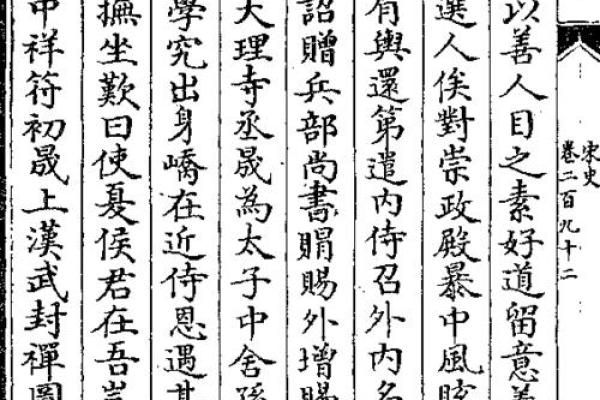 宋史
卷二百九十二
以善人目之素好道留意養
選人俟對崇政殿暴中風眩
肩輿還第遣内侍召外内名
詔贈兵部尚書賵賜外增賜
大理寺丞晟為太子中舍孫
學究出身嶠在近侍恩遇甚
撫坐歎曰使夏侯君在吾豈
中祥符初晟上漢武封禪圖